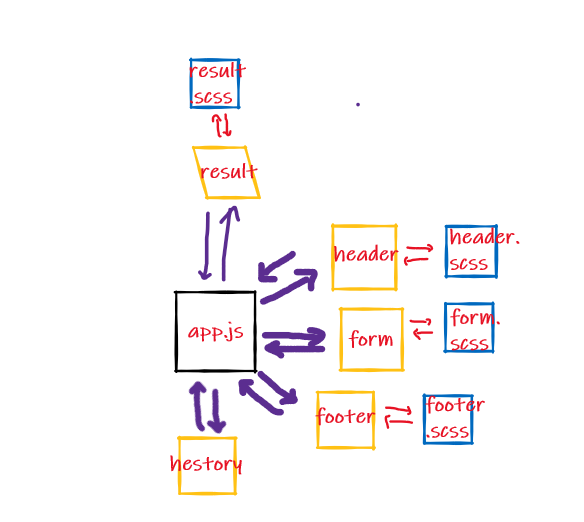 result
.scss
result
header
header.
scss
app.js
form
form.
scss
footer
footer
.scss
hestory